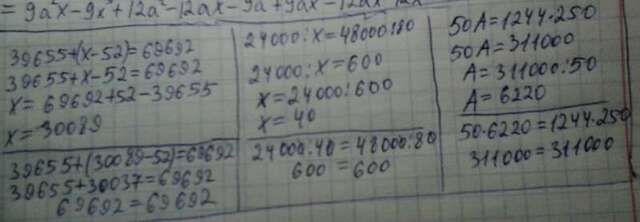 = 9a²x - 9x³ + 12a² - 12ax - 9a + 9ax - 12ax
39655+(x-52)=69692
39655+x-52=69692
x=69692+52-39655
x=30089
39655+(30089-52)=69692
39655+30037=69692
69692=69692
24000:x=48000:80
24000:x=600
x=24000:600
x=40
24000:40=48000:80
600=600
50A=1244·250
50A=311000
A=311000:50
A=6220
50·6220=1244·250
311000=311000